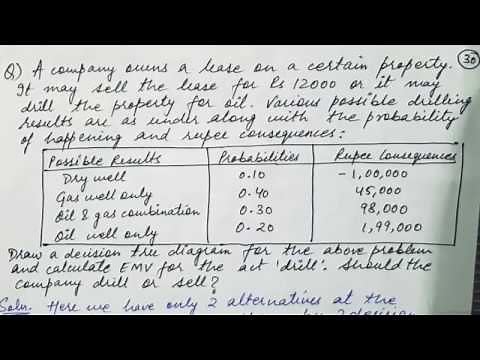 30
Q) A company owns a lease on a certain property.
It may sell the lease for Rs 12000 or it may
drill the property for oil. Various possible drilling
results are as under along with the probability
of happening and rupee consequences:
Possible Results Probabilities Rupee Consequences
Dry well 0.10 -1,00,000
Gas well only 0.40 45,000
Oil & gas combination 0.30 98,000
Oil well only 0.20 1,99,000
Draw a decision tree diagram for the above problem
and calculate EMV for the act 'drill'. Should the
company drill or sell?
Soln. Here we have only 2 alternatives at the